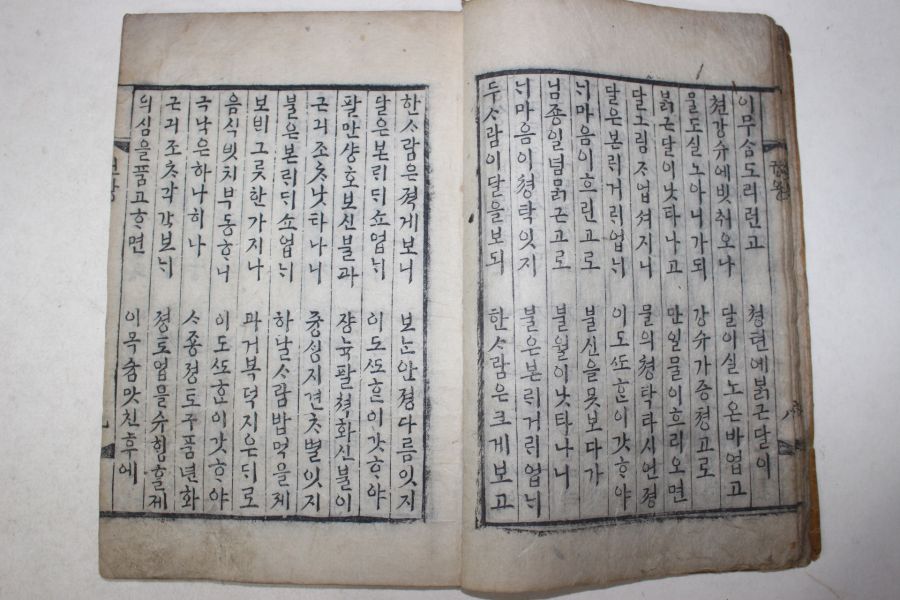 이무ᄉᆞᆷ도리런고 쳥텬에붉근달이
쳔강슈에빗취오나 달이실노온바업고
물도실노아니가되 강슈가증쳥고로
붉근달이낫타나고 만일물이흐리오면
달그림ᄌᆞ업셔지니 물의쳥탁타시언졍
달은본ᄅᆡ거ᄅᆡ업ᄂᆡ 이도ᄯᅩᄒᆞᆫ이갓ᄒᆞ야
ᄂᆡ마음이흐린고로 불신을못보다가
님죵일념묽근고로 불월이낫타나니
ᄂᆡ마음이쳥탁잇지 불은본ᄅᆡ거ᄅᆡ업ᄂᆡ
두ᄉᆞ람이달을보되 한ᄉᆞ람은크게보고
한ᄉᆞ람은젹게보니 보ᄂᆞᆫ안졍다름잇지
달은본ᄅᆡᄃᆡ쇼업ᄂᆡ 이도ᄯᅩᄒᆞᆫ이갓ᄒᆞ야
팔만샹호보신불과 쟝뉵팔쳑화신불이
근긔조ᄎᆞ낫타나니 즁ᄉᆡᆼ지견ᄎᆞ별잇지
불은본ᄅᆡᄃᆡ쇼업ᄂᆡ 하날ᄉᆞ람밥먹을제
보ᄇᆡ그릇한가지나 과거복덕지은ᄃᆡ로
음식빗치부동ᄒᆞ니 이도ᄯᅩᄒᆞᆫ이갓ᄒᆞ야
극낙은하나히나 ᄉᆞ죵졍토구품년화
근긔조ᄎᆞ각각보ᄂᆡ 졍토업을슈ᄒᆡᆼᄒᆞᆯ제
의심을품고ᄒᆞ면 이목숨맛친후에